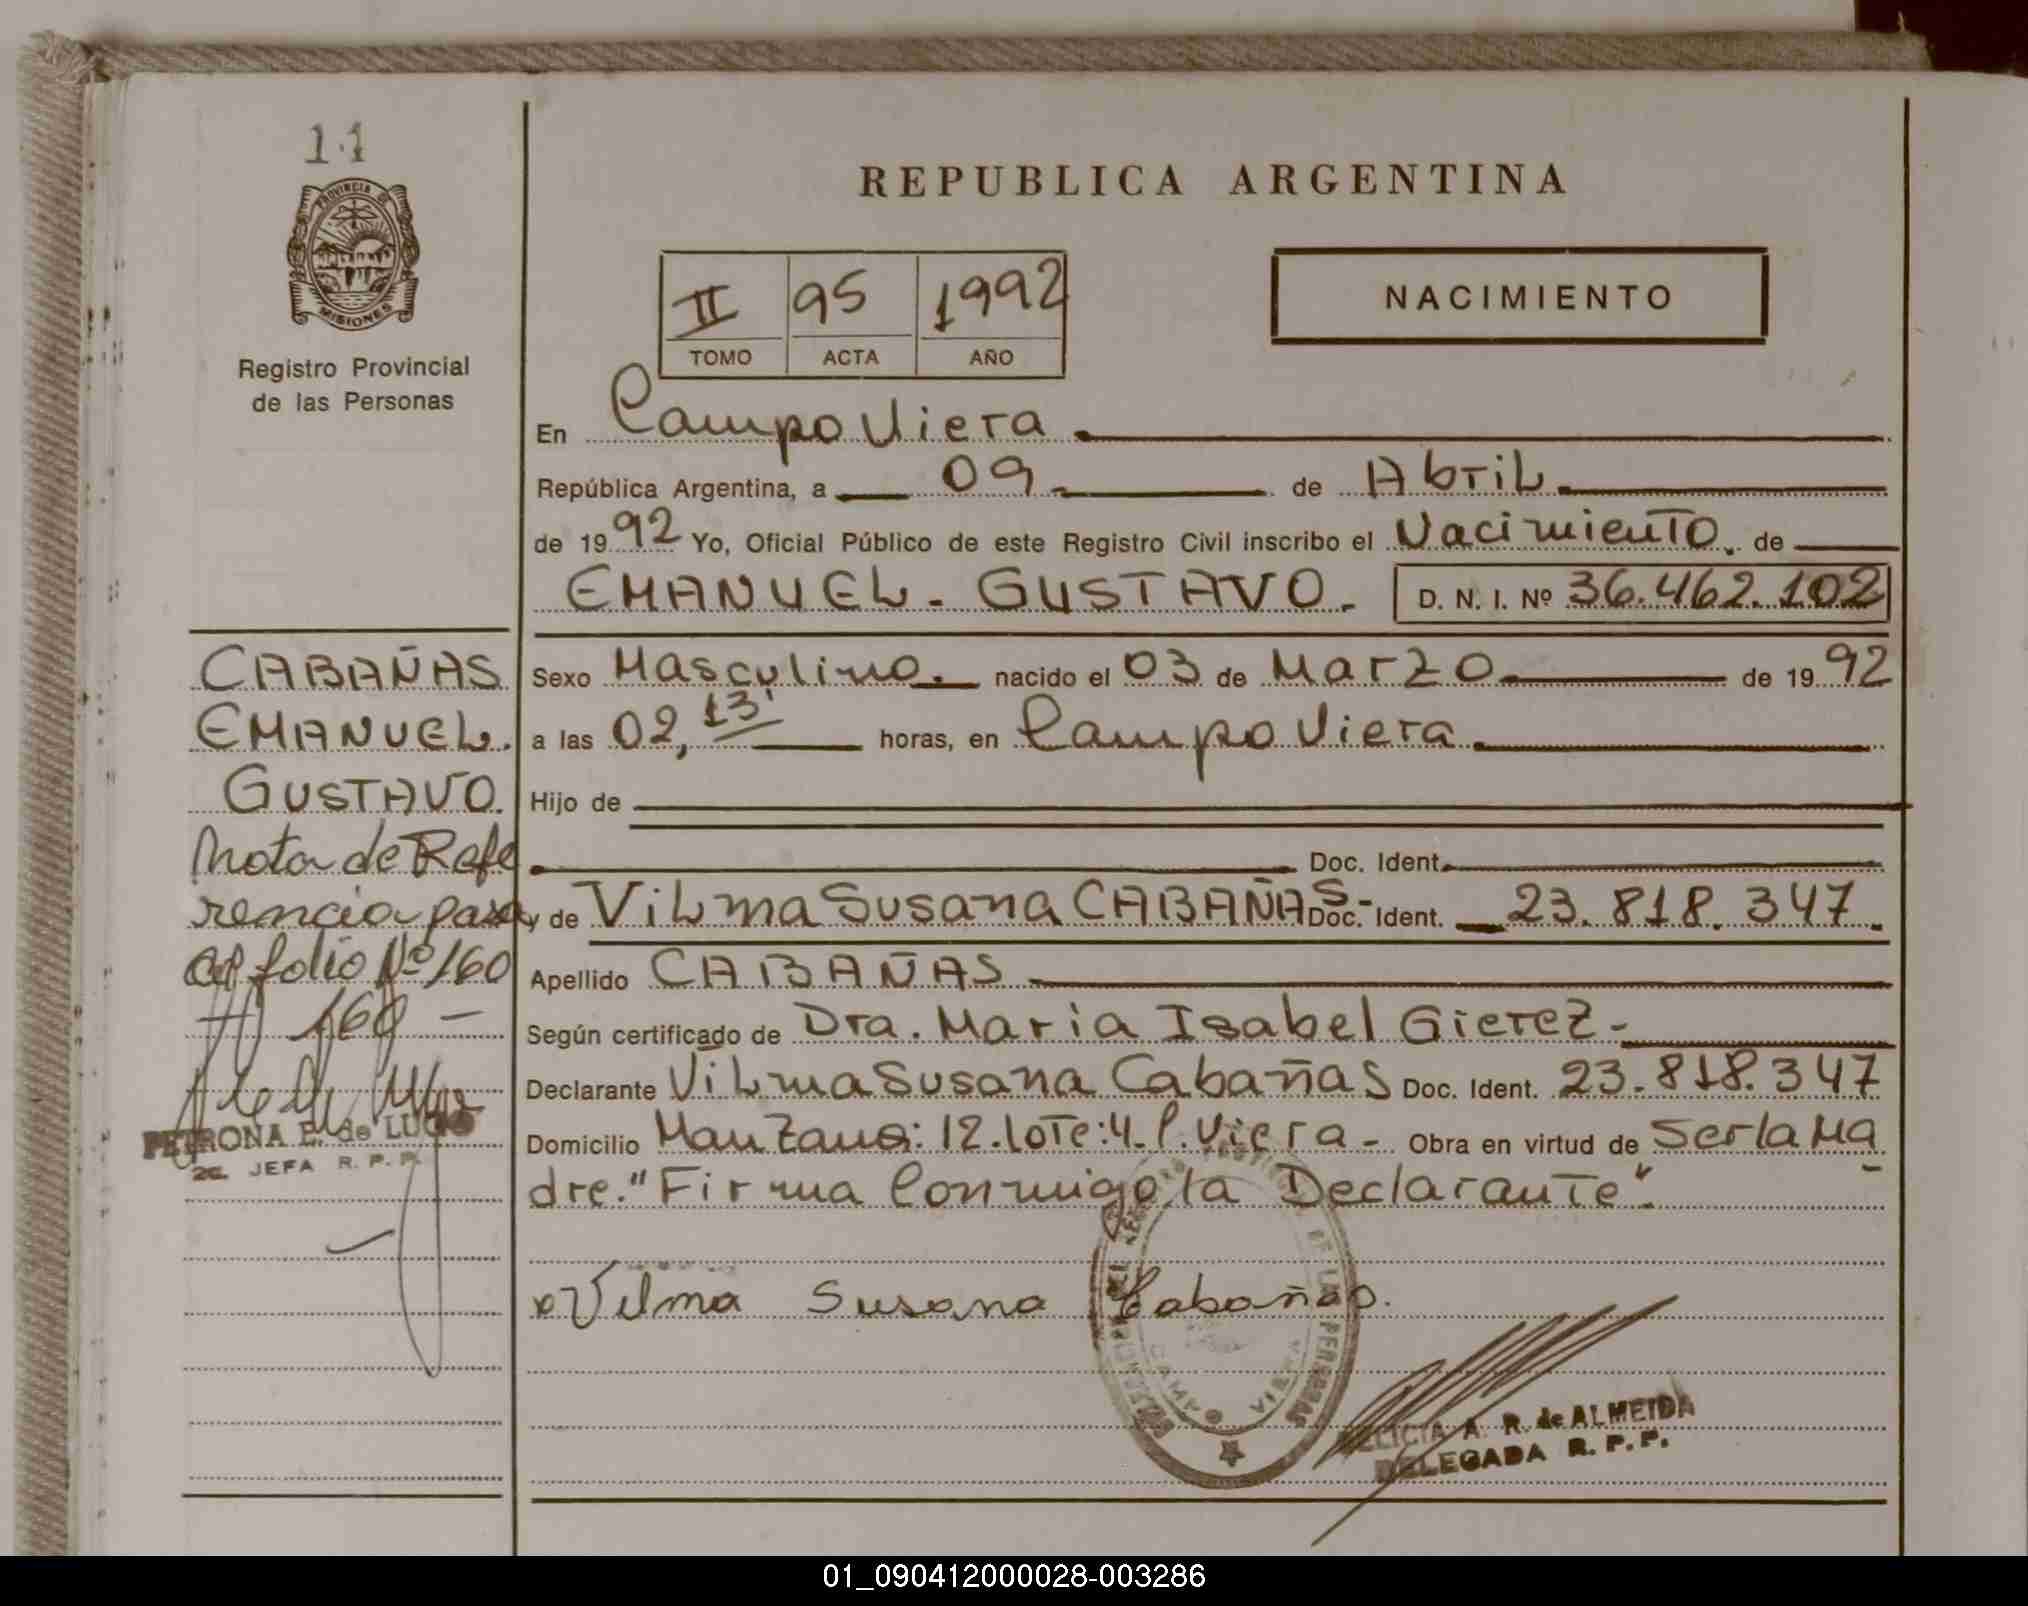 11
PROVINCIA DE
MISIONES
Registro Provincial
de las Personas
REPUBLICA ARGENTINA
II 95 1992
TOMO ACTA AÑO
NACIMIENTO
En Campo Viera.
República Argentina, a 09. de Abril.
de 1992 Yo, Oficial Público de este Registro Civil inscribo el Nacimiento. de
EMANUEL. GUSTAVO. D. N. I. Nº 36.462.102
CABAÑAS
EMANUEL.
GUSTAVO.
Nota de Refe
rencia pasa
al folio Nº 160
160 —
PETRONA E. de LUGO
2a. JEFA R. P. P.
Sexo Masculino. nacido el 03 de Marzo de 1992
a las 02,13' horas, en Campo Viera.
Hijo de
Doc. Ident.
y de Vilma Susana CABAÑAS.- Doc. Ident. 23.818.347.
Apellido CABAÑAS.
Según certificado de Dra. Maria Isabel Gierez-
Declarante Vilma Susana Cabañas Doc. Ident. 23.818.347
Domicilio Manzana: 12. lote: 4. C. Viera.- Obra en virtud de Ser la Ma
dre. "Firma Conmigo la Declarante".
x Vilma Susana Cabañas.
REGISTRO PROVINCIAL DE LAS PERSONAS
CAMPO VIERA
FELICIA A. R. de ALMEIDA
DELEGADA R. P. P.
01_090412000028-003286